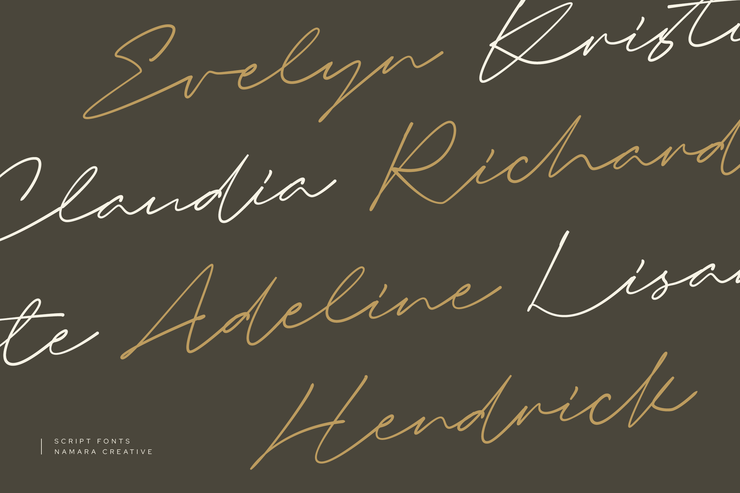 Evelyn Kristi
Claudia Richard
te Adeline Lisa
Hendrick
SCRIPT FONTS
NAMARA CREATIVE